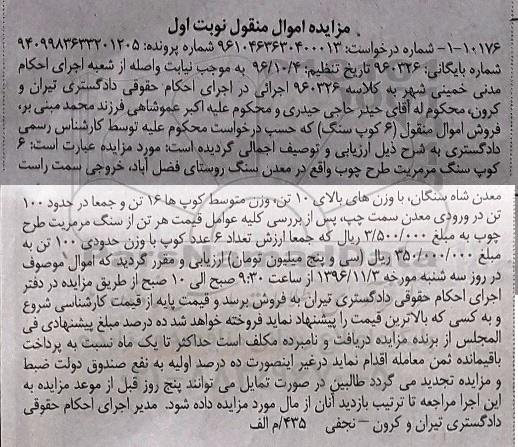 مزایده اموال منقول نوبت اول
۱۰۱۷۶-۱- شماره درخواست: ۹۶۱۰۴۶۳۶۳۰۴۰۰۰۱۳ شماره پرونده: ۹۴۰۹۹۸۳۶۳۳۲۰۱۲۰۵
شماره بایگانی: ۹۶۰۳۲۶ تاریخ تنظیم: ۹۶/۱۰/۴ به موجب نیابت واصله از شعبه اجرای احکام
مدنی خمینی شهر به کلاسه ۹۶۰۳۲۶ اجرائی در اجرای احکام حقوقی دادگستری تیران و
کرون، محکوم له آقای حیدر حاجی حیدری و محکوم علیه اکبر عموشاهی فرزند محمد مبنی بر،
فروش اموال منقول (۶ کوپ سنگ) که حسب درخواست محکوم علیه توسط کارشناس رسمی
دادگستری به شرح ذیل ارزیابی و توصیف اجمالی گردیده است: مورد مزایده عبارت است: ۶
کوپ سنگ مرمریت طرح چوب واقع در معدن سنگ روستای فضل آباد، خروجی سمت راست
معدن شاه سنگان، با وزن های بالای ۱۰ تن، وزن متوسط کوپ ها ۱۶ تن و جمعا در حدود ۱۰۰
تن در ورودی معدن سمت چپ، پس از بررسی کلیه عوامل قیمت هر تن از سنگ مرمریت طرح
چوب به مبلغ ۳/۵۰۰/۰۰۰ ریال که جمعا ارزش تعداد ۶ عدد کوپ با وزن حدودی ۱۰۰ تن به
مبلغ ۳۵۰/۰۰۰/۰۰۰ ریال (سی و پنج میلیون تومان) ارزیابی و مقرر گردید که اموال موصوف
در روز سه شنبه مورخه ۱۳۹۶/۱۱/۳ از ساعت ۹:۳۰ صبح الی ۱۰ صبح از طریق مزایده در دفتر
اجرای احکام حقوقی دادگستری تیران به فروش برسد و قیمت پایه از قیمت کارشناسی شروع
و به کسی که بالاترین قیمت را پیشنهاد نماید فروخته خواهد شد ده درصد مبلغ پیشنهادی فی
المجلس از برنده مزایده دریافت و نامبرده مکلف است حداکثر تا یک ماه نسبت به پرداخت
باقیمانده ثمن معامله اقدام نماید درغیر اینصورت ده درصد اولیه به نفع صندوق دولت ضبط
و مزایده تجدید می گردد طالبین در صورت تمایل می توانند پنج روز قبل از موعد مزایده به
این اجرا مراجعه تا ترتیب بازدید آنان از مال مورد مزایده داده شود. مدیر اجرای احکام حقوقی
دادگستری تیران و کرون – نجفی ۴۳۵/م الف